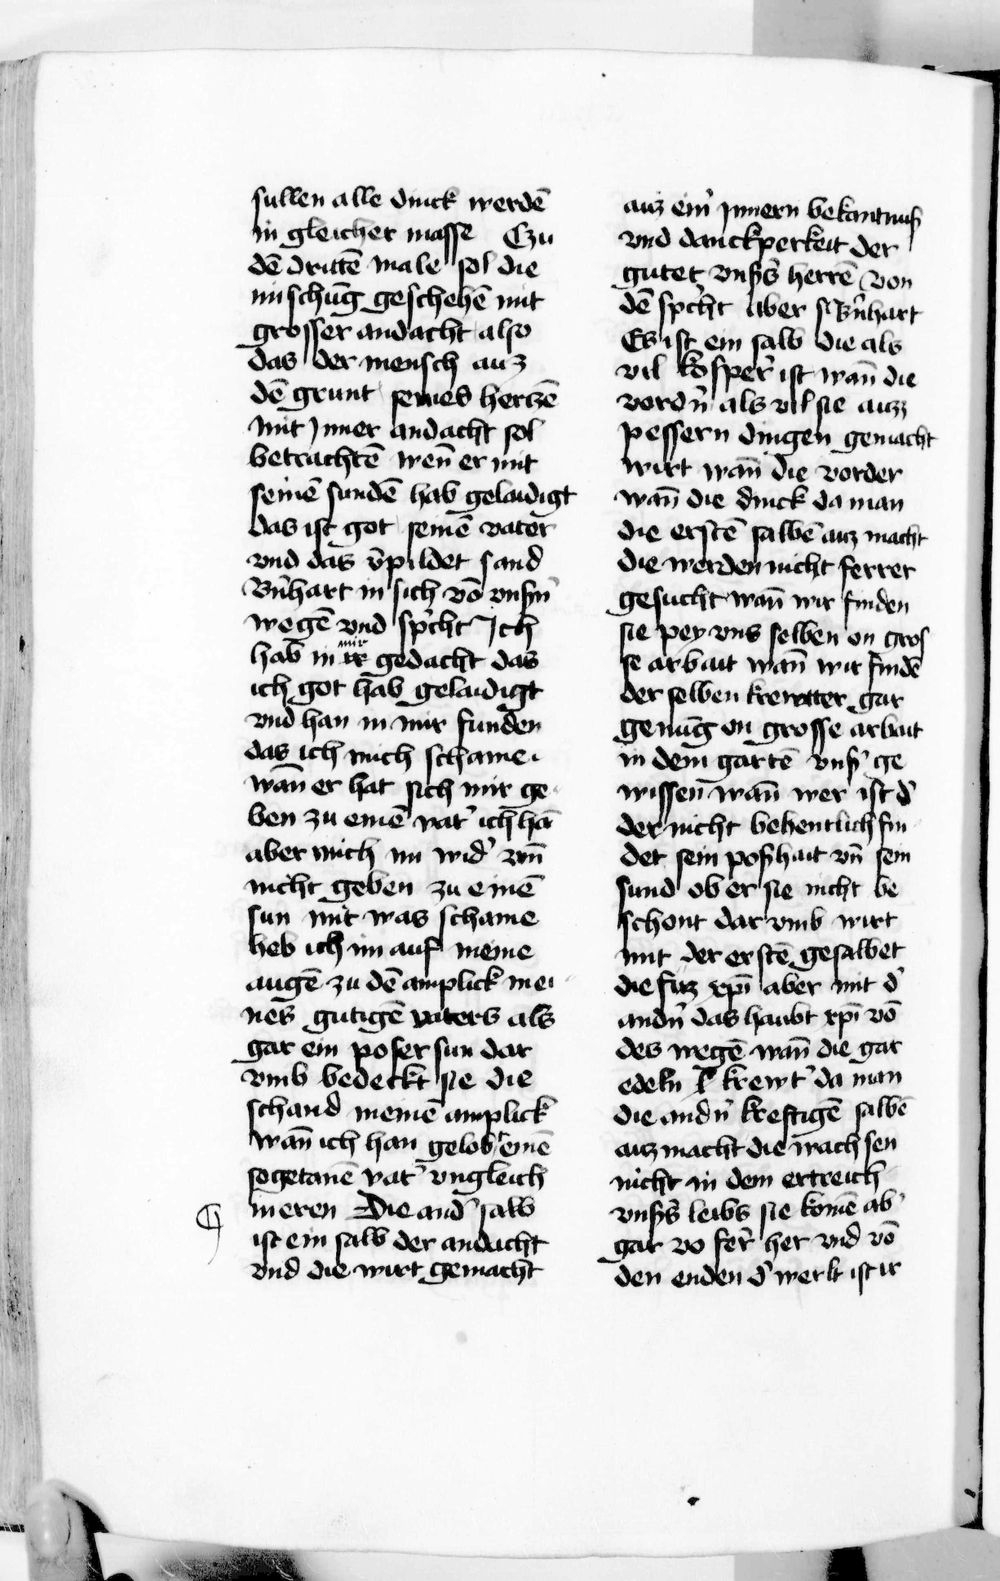 sullen alle dinck werdē
in gleicher masse Czu
dē drittē male sol die
mischūg geschehē mit
grosser andacht also
das der mensch auz
dē grunt seines herczē
mit Inner andacht sol
betrachtē wen̄ er mit
seinē sundē hab gelaidigt
das ist got seinē vater
vnd das v̄pildet sand
Bn̄hart in sich vō vnsm̄
wegē vnd sp̄cht Ich
hab in mir gedacht das
ich got hab gelaidigt
vnd han in mir funden
das ich mich schame
wan̄ er hat sich mir ge
ben zu einē vat' ich hā
aber mich im wid' vm̄
nicht geben zu einē
sun mit was schame
heb ich nu auf meine
augē zu dē amplick mei
nes gutigē vaters als
gar ein poser sun dar
vmb bedeckt sie die
schand meinē amplick
wan̄ ich han gelobt einē
sogetanē vat' vngleich
meren Die and' salb
ist ein salb der andacht
vnd die wirt gemacht
auz ein' Innern bekantnuß
vnd danckperkeit der
gutet vnßs herrē von
dē sp̄cht aber s Bn̄hart
Es ist ein salb die als
vil kosper' ist wan̄ die
vordn̄ als vil sie auzz
pessern dingen gemacht
wirt wan̄ die vorder
wan̄ die dinck da man
die erstē salbē auz macht
die werden nicht ferrer
gesucht wan̄ wir finden
sie pey vns selben on gros
se arbait wan̄ wir findē
der selben krewtter gar
genūg on grosse arbait
in dem gartē vnß' ge
wissen wan̄ wer ist d'
der nicht behentlich fin
det sein poßhait vn̄ sein
sund ob er sie nicht be
schont dar vmb wirt
mit der erstē gesalbet
die fuz xp̄i aber mit d'
andn̄ das haubt xp̄i vō
des wegē wan̄ die gar
edeln krewt' da man
die andn̄ kreftigē salbē
auz macht die wachsen
nicht in dem ertreich
vnßs leibs sie komē ab'
gar vo fer' her vnd vō
den enden d' werlt ist ir